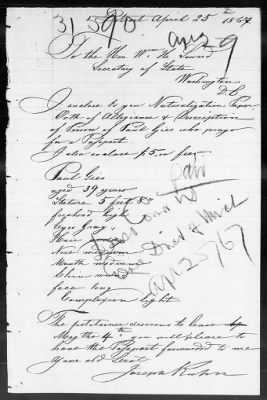 31590
Detroit April 25th 1867
apr 29
To the Hon Wm H. Seward
Secretary of State
Washington
D.C
I enclose to you Naturalization Paper
Oath of Allegiance & Description
of Person of Paul Gies who prays
for a Passport
I also enclose $5 in fees
Paul Gies
aged 39 years
Stature 5 feet 8½
forehead high
Eyes Gray
Hair
Nose medium
Mouth medium
Chin
face long
Complexion light
Law
East Dist of Mich
apr 25/67
The petitioner desires to leave
May the 4th you will please to
have the Passport forwarded to me
Your obd Servt
Joseph Kuhn